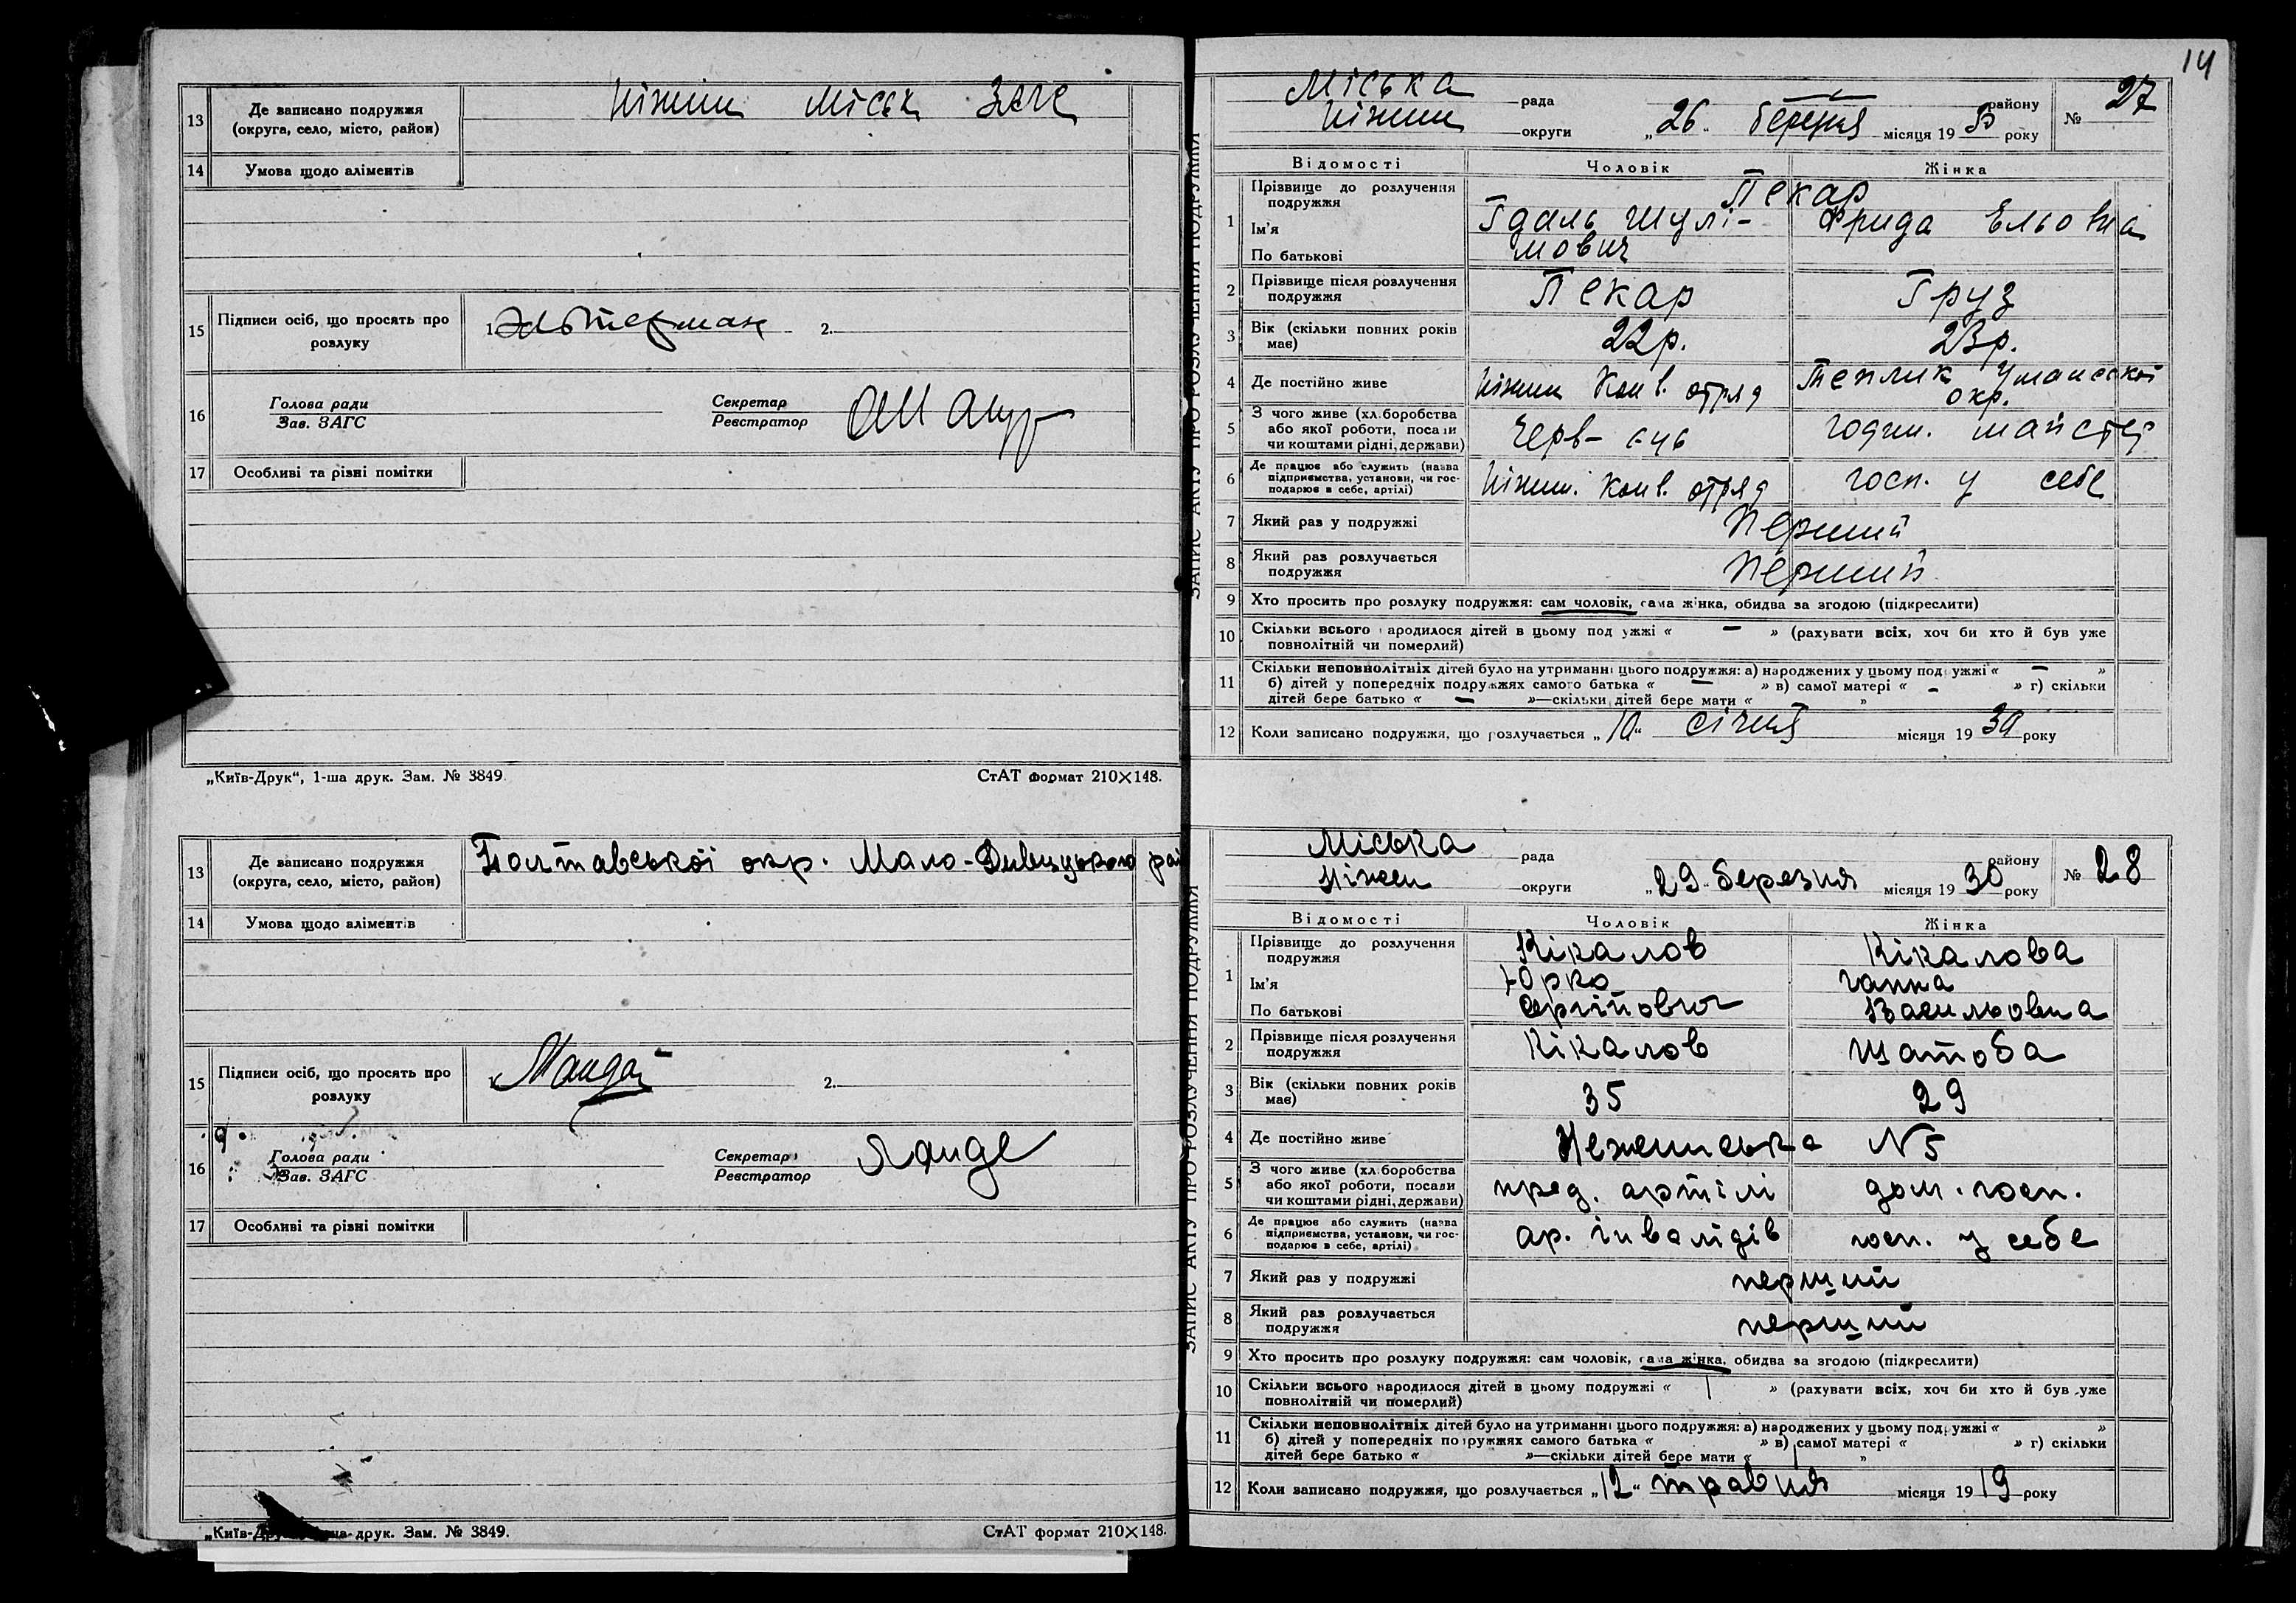 14
13
Де записано подружжя
(округа, село, місто, район)
Ніжин міськ ЗАГС
14
Умова щодо аліментів
15
Підписи осіб, що просять про
розлуку
1.
2.
16
Голова ради
Зав. ЗАГС
Секретар
Реєстратор
17
Особливі та різні помітки
„Київ-Друк“, 1-ша друк. Зам. № 3849.
СтАТ формат 210×148.
ЗАПИС АКТУ ПРО РОЗЛУЧЕННЯ ПОДРУЖЖЯ
Міська рада району
Ніжин округи „26“ березня місяця 19 30 року
№ 27
Відомості Чоловік Жінка
1
Прізвище до розлучення
подружжя
Пекар
Ім'я
Гдаль Шулі- Фрида Ельовна
По батькові
мович
2
Прізвище після розлучення
подружжя
Пекар Груз
3
Вік (скільки повних років
має)
22р. 23р.
4
Де постійно живе
Ніжин Конв. отряд Теплик Уманської
окр.
5
З чого живе (хліборобства
або якої роботи, посади
чи коштами рідні, держави)
Черв- майстер
6
Де працює або служить (назва
підприємства, установи, чи гос-
подарює в себе, артілі)
Ніжин. Конв. отряд госп. у себе
7
Який раз у подружжі
Перший
8
Який раз розлучається
подружжя
Перший
9
Хто просить про розлуку подружжя: сам чоловік, сама жінка, обидва за згодою (підкреслити)
10
Скільки всього народилося дітей в цьому подружжі « — » (рахувати всіх, хоч би хто й був уже
повнолітній чи померлий)
11
Скільки неповнолітніх дітей було на утриманні цього подружжя: а) народжених у цьому подружжі « — »
б) дітей у попередніх подружжях самого батька « — » в) самої матері « — » г) скільки
дітей бере батько « — »—скільки дітей бере мати « »
12
Коли записано подружжя, що розлучається „10“ січня місяця 19 30 року
13
Де записано подружжя
(округа, село, місто, район)
Полтавської окр. Мало-Дівицького рай
14
Умова щодо аліментів
15
Підписи осіб, що просять про
розлуку
1.
2.
16
Голова ради
Зав. ЗАГС
Секретар
Реєстратор
17
Особливі та різні помітки
„Київ-Друк“, 1-ша друк. Зам. № 3849.
СтАТ формат 210×148.
ЗАПИС АКТУ ПРО РОЗЛУЧЕННЯ ПОДРУЖЖЯ
Міська рада району
Ніжен округи „29“ березня місяця 19 30 року
№ 28
Відомості Чоловік Жінка
1
Прізвище до розлучення
подружжя
Кікалов Кікалова
Ім'я
Юрко Ганна
По батькові
Сергійович Васильовна
2
Прізвище після розлучення
подружжя
Кікалов Шатоба
3
Вік (скільки повних років
має)
35 29
4
Де постійно живе
Неженська N 5
5
З чого живе (хліборобства
або якої роботи, посади
чи коштами рідні, держави)
пред. артілі дом. госп.
6
Де працює або служить (назва
підприємства, установи, чи гос-
подарює в себе, артілі)
ар. інвалідів госп. у себе
7
Який раз у подружжі
перший
8
Який раз розлучається
подружжя
перший
9
Хто просить про розлуку подружжя: сам чоловік, сама жінка, обидва за згодою (підкреслити)
10
Скільки всього народилося дітей в цьому подружжі « 1 » (рахувати всіх, хоч би хто й був уже
повнолітній чи померлий)
11
Скільки неповнолітніх дітей було на утриманні цього подружжя: а) народжених у цьому подружжі « »
б) дітей у попередніх подружжях самого батька « » в) самої матері « » г) скільки
дітей бере батько « »—скільки дітей бере мати « 1 »
12
Коли записано подружжя, що розлучається „12“ травня місяця 19 19 року